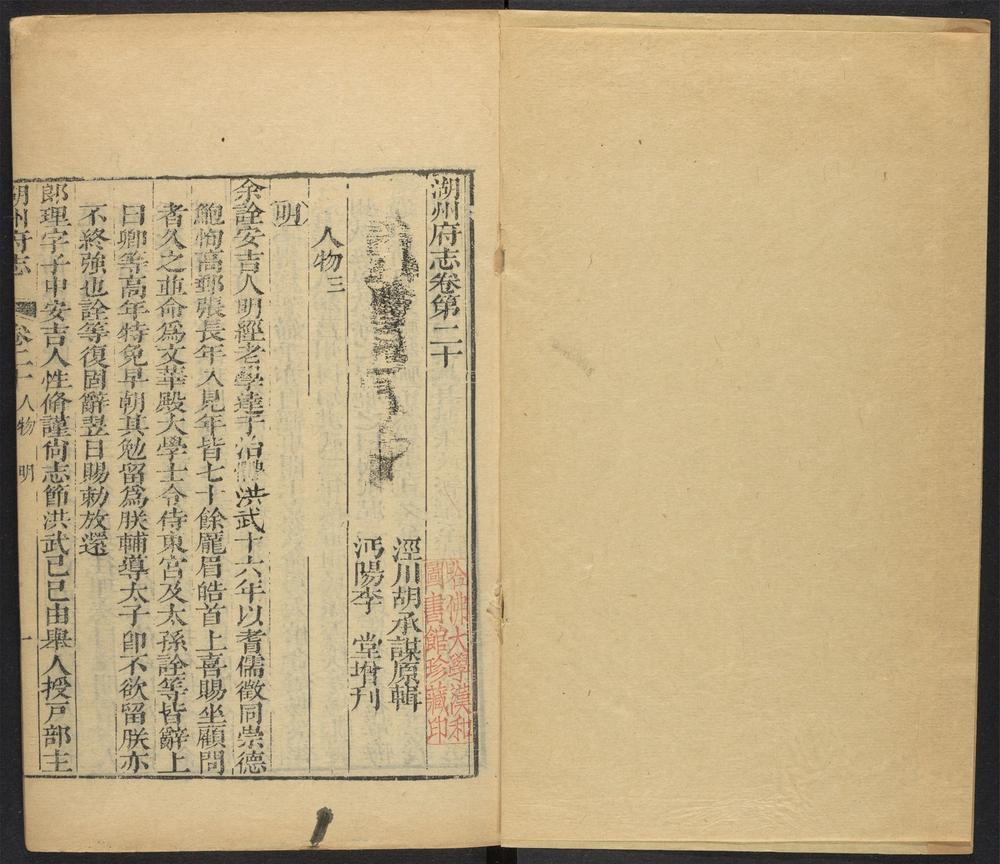 湖州府志卷第二十
涇川胡承謀原輯
沔陽李　堂增刊
人物三
明
余詮安吉人明經老學達于治體洪武十六年以耆儒徵同崇德
鮑恂高郵張長年入見年皆七十餘龐眉皓首上喜賜坐顧問
者久之並命爲文華殿大學士令侍東宮及太孫詮等皆辭上
曰卿等高年特免早朝其勉留爲朕輔導太子卽不欲留朕亦
不終強也詮等復固辭翌日賜勅放還
郎理字子中安吉人性脩謹尙志節洪武己巳由舉人授戸部主
湖州府志　卷二十　人物　明　一
哈佛大學漢和
圖書館珍藏印